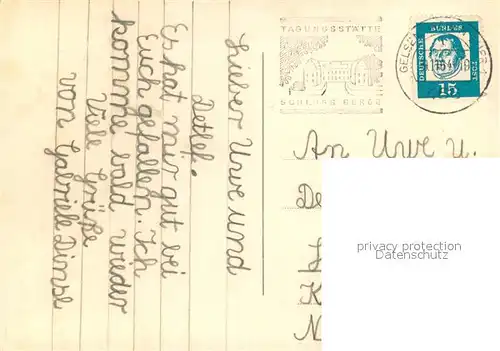 Lieber Uwe und
Detlef.
Es hat mir gut bei
Euch gefallen. Ich
komme bald wieder
Viele Grüße
von Gabriele
TAGUNGSSTÄTTE
SCHLOSS BERGE
DEUTSCHE BUNDESPOST
15
An Uwe u.
De
K
N
privacy protection
Datenschutz